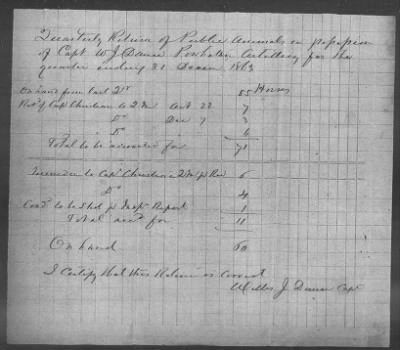 Quarterly Return of Public Animals in possession
of Capt W J Dance Powhatan Artillery for the
quarter ending 31 Decem 1863
Horses
On hand from last 2r 55
Recd of Cap Christian A 2 M Oct 22 7
Do Dec 7 3
" Do 6
Total to be accounted for 71
Cap Christian A 2 M p Rec 6
Do 4
Cond to be Shot p Insp Report 1
Total accd for 11
On hand 60
I Certify that this Return is correct
Willis J Dance Capt